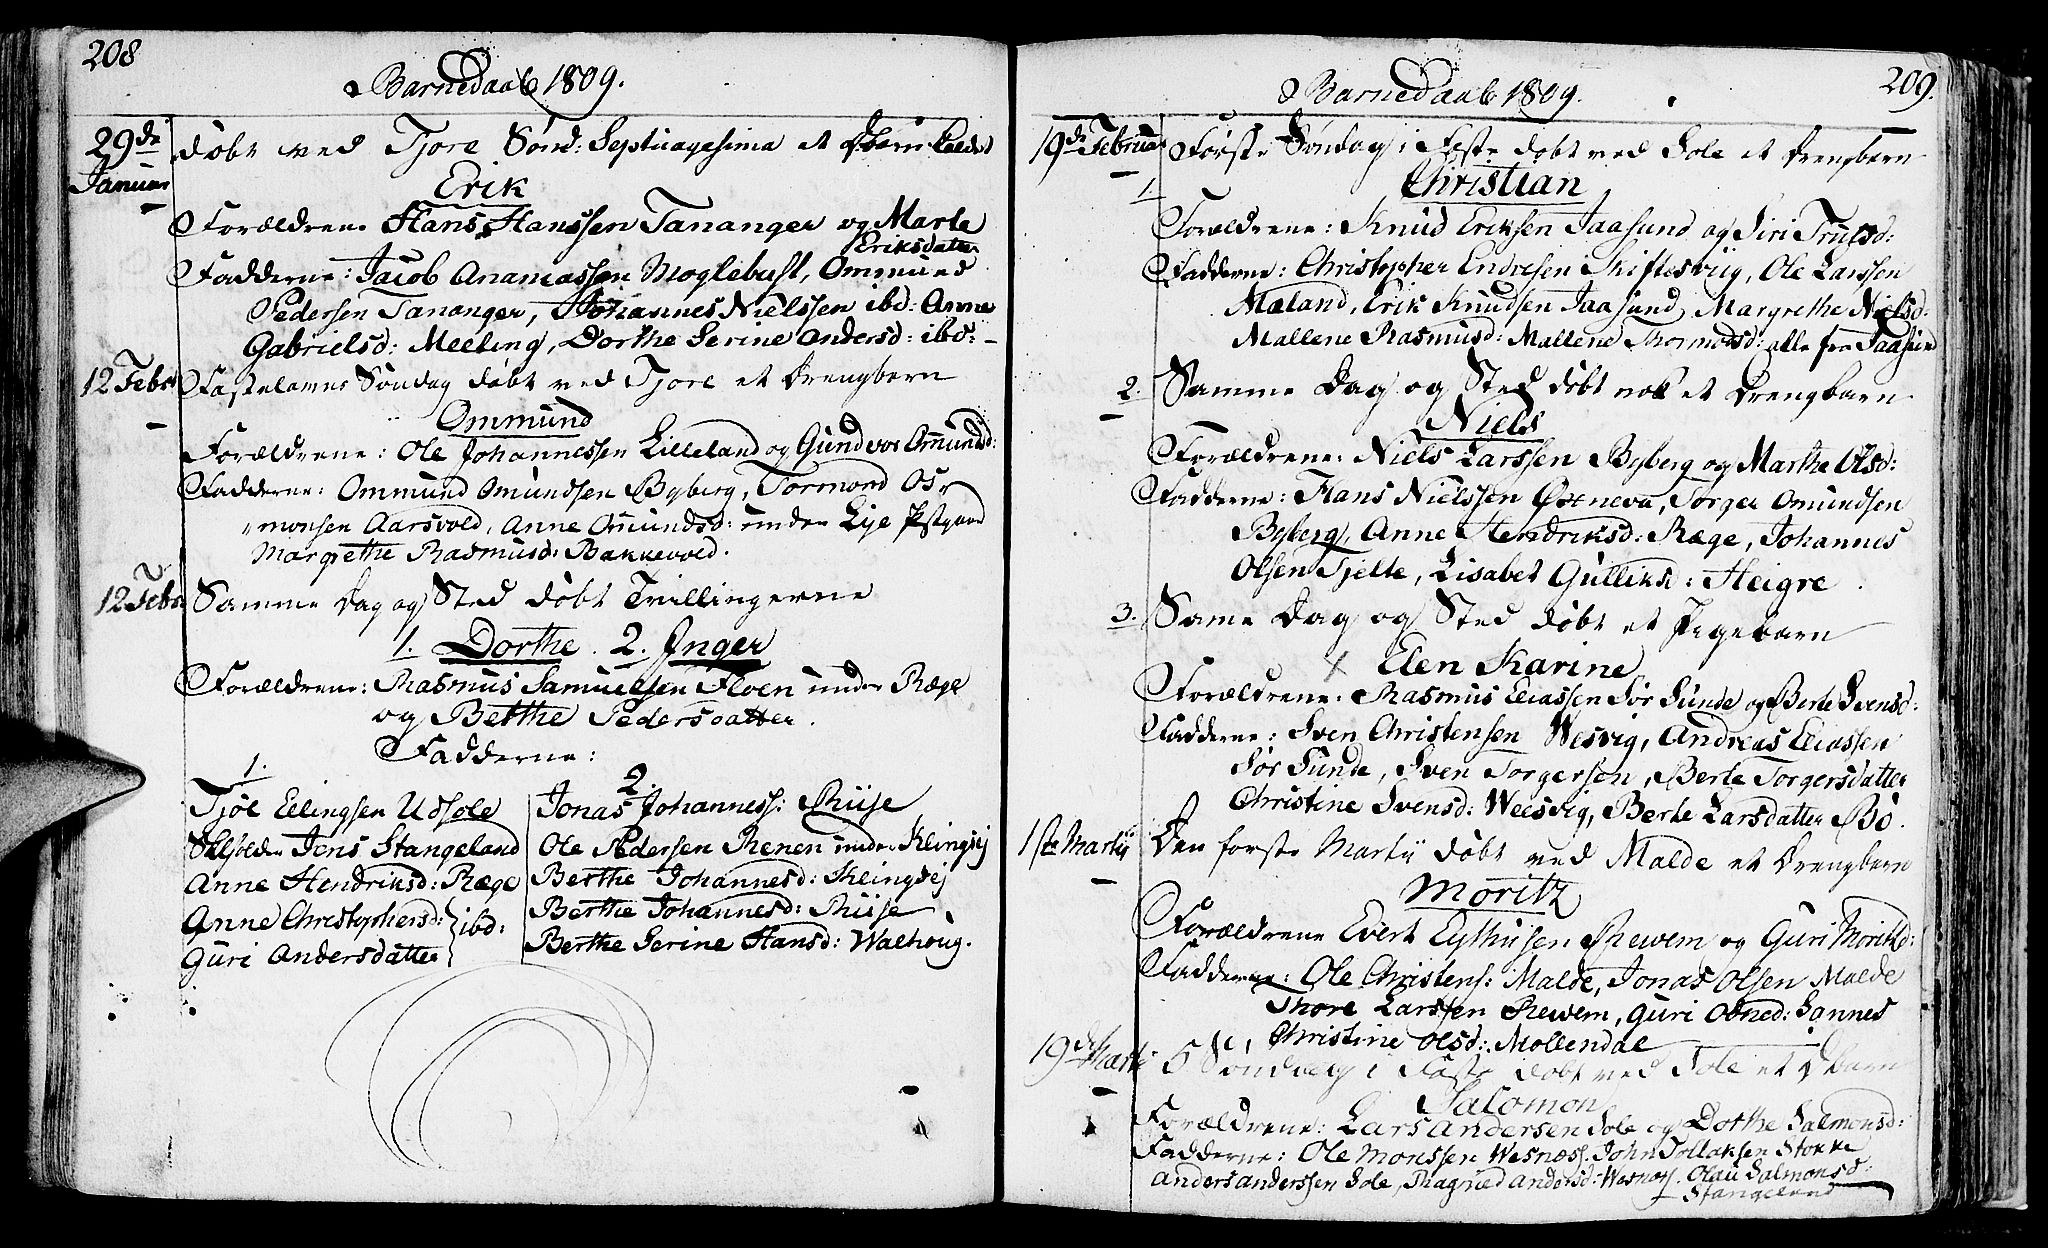 208
Barnedaab 1809.
29de Januar døbt ved Tjore Sønd: Septuagesima et barn kaldet
Erik
Forældrene Hans Hanssen Tananger og Marte
Eriksdatter
Fadderne: Jacob Ananiassen Moglebust, Ommund
Pedersen Tananger, Johannes Nielssen ibd: Anne
Gabrielsd: Meeling, Dorthe Serine Andersd: ibd:
12 Febr Fastelavns Søndag døbt ved Tjore et Drengbarn
Ommund
Forældrene: Ole Johannessen Lilleland og Gundvor Omundsd:
Fadderne: Ommund Omundsen Byberg, Tormond Os-
monsen Aarsvold, Anne Omundsd: under Lye
Margrethe Rasmusd: Bakkevold.
12 Febr Samme Dag og Sted døbt Tvillingerne
1. Dorthe. 2. Inger
Forældrene: Rasmus Samuelsen Floen under Ræge
og Berthe Pedersdatter.
Fadderne:
1.
Tjøl Ellingsen Udsole
Jens Stangeland
Anne Hendriksd: Ræge
Anne Christophersd: } ibd:
Guri Andersdatter
2.
Jonas Johanness: Riise
Ole Pedersen Renen under Kleingvej
Berthe Johannesd: Kleingvej
Berthe Johannesd: Riise
Berthe Serine Hansd: Walhoug.
209.
Barnedaab 1809.
19de Februar Første Søndag i Faste døbt ved Sole et Drengbarn
1. Christian
Forældrene: Knud Eriksen Jaasund og Siri Trulsd:
Fadderne: Christopher Endresen Skiftesviig, Ole Larssen
Mæland, Erik Knudsen Jaasund, Margrethe Nielsd:
Mallene Rasmusd: Mallene Thormodsd: alle fra Jaasund
2. Samme Dag og Sted døbt nok et Drengbarn
Niels
Forældrene: Niels Larssen Byberg og Marthe Olsd:
Fadderne: Hans Nielssen Øxneva, Torger Omundsen
Byberg, Anne Hendriksd: Ræge, Johannes
Olsen Tjelte, Lisabet Gulliksd: Heigre.
3. Same Dag og Sted døbt et Pigebarn
Elen Karine
Forældrene: Rasmus Eliassen Sør Sunde og Berte Svensd:
Fadderne: Sven Christensen Wesvig, Andreas Eliassen
Sør Sunde, Sven Torgersen, Berte Torgersdatter
Christine Svensd: Weesvig, Berte Larsdatter Bø.
1ste Martii Den første Martii døbt ved Malde et Drengbarn
Moritz
Forældrene Evert Rewem og Guri Moritzd:
Fadderne: Ole Christens: Malde, Jonas Olsen Malde
Thore Larssen Rewem, Guri Sannes
Christine Olsd: Mollendal
19de Marti 5te Søndag i Faste døbt ved Sole et barn
Salomon
Forældrene: Lars Andersen Sole og Dorthe Salmonsd:
Fadderne: Ole Monssen Wesnæss, John Tollaksen Stokke
Anders Anderssen Sole, Magred Andersd: Wesnæs, Olau Salmonsd:
Stangeland